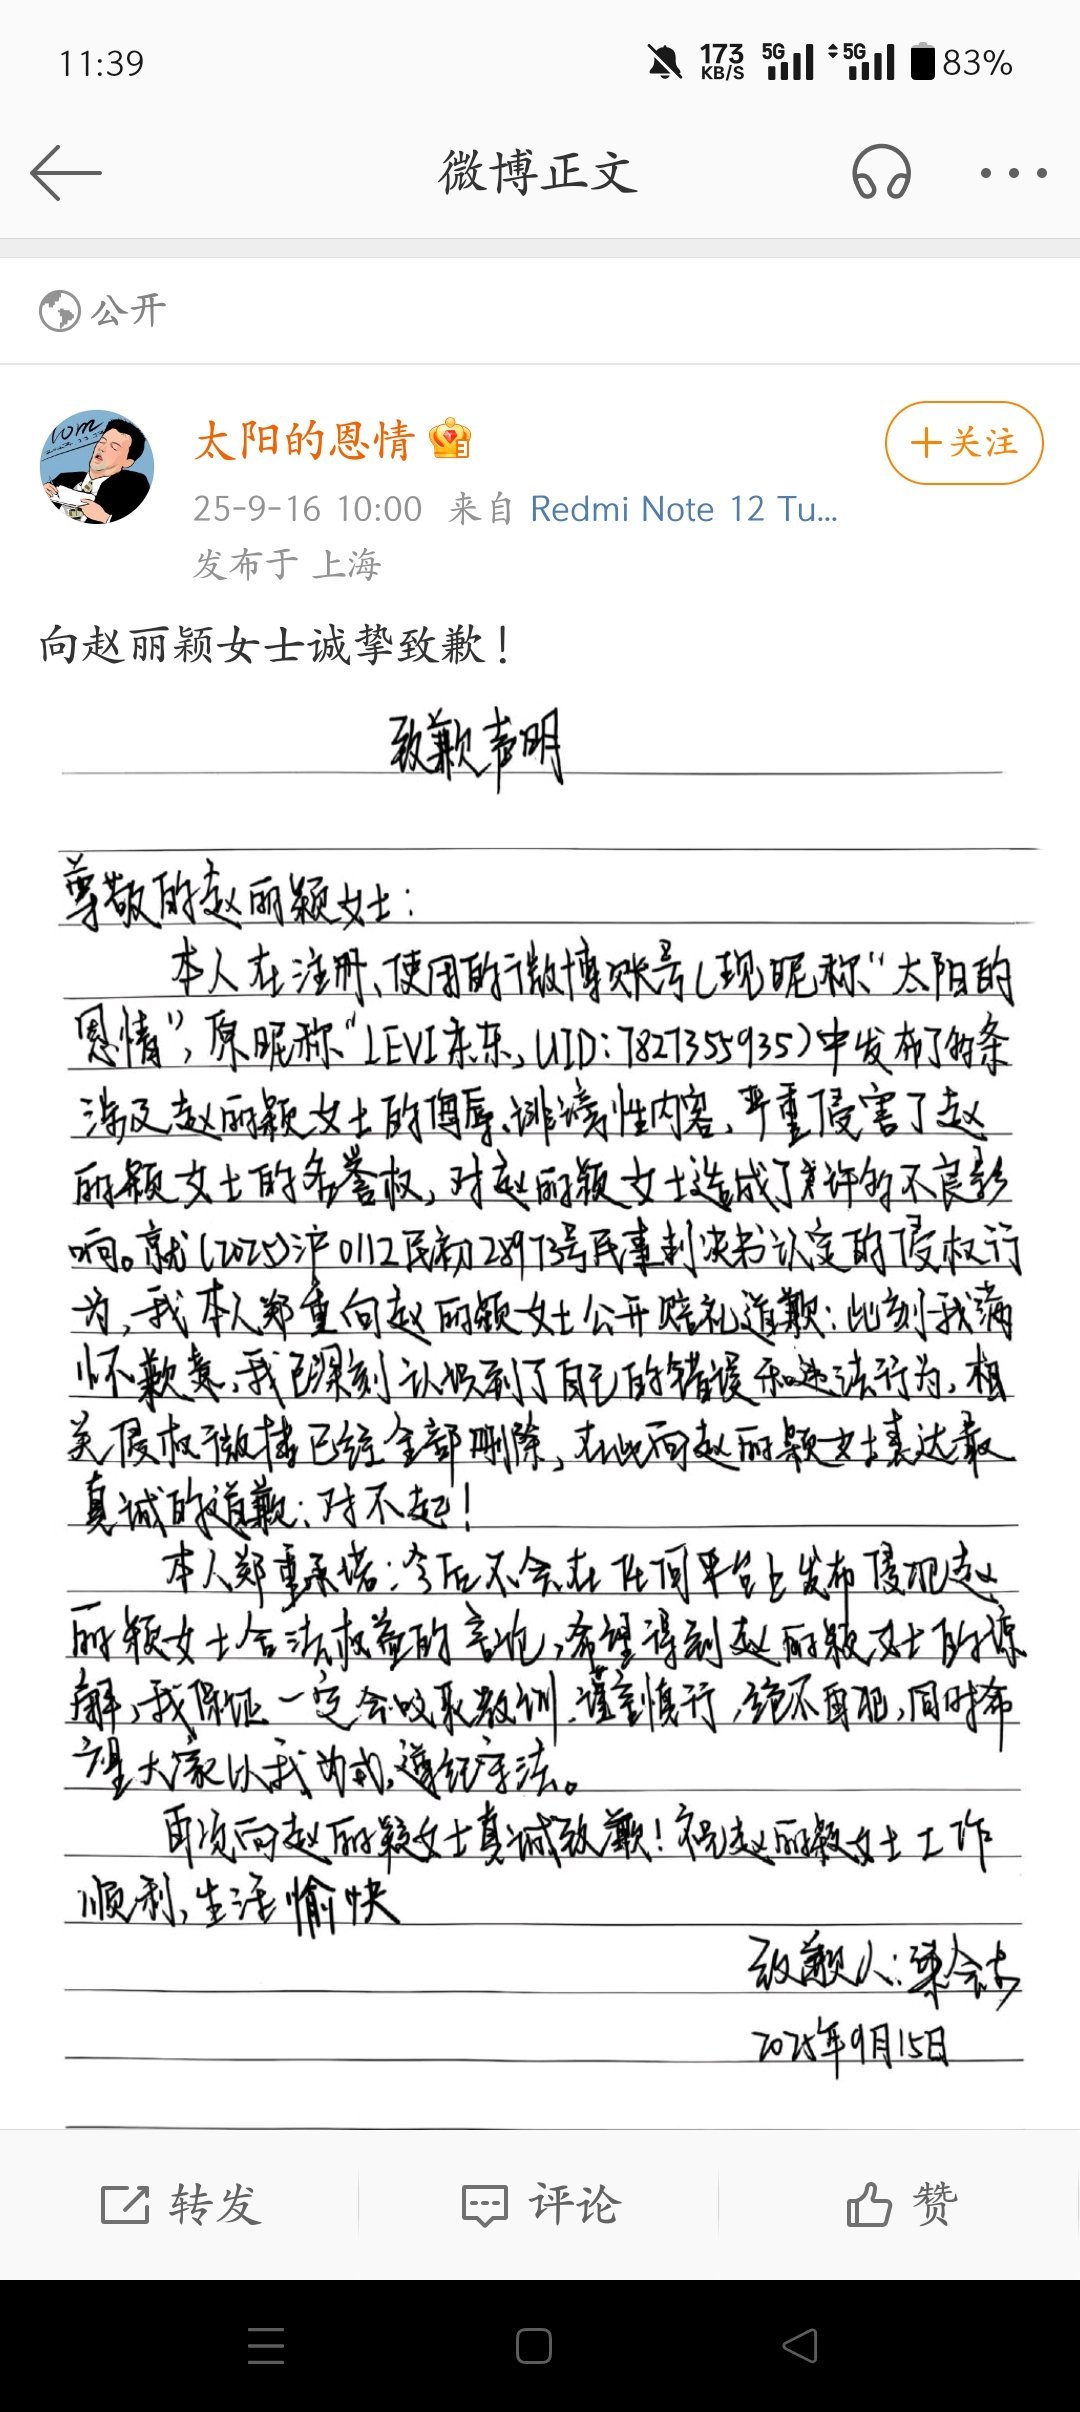 11:39
173 KB/S 5G 5G 83%
微博正文
公开
太阳的恩情
+关注
25-9-16 10:00 来自 Redmi Note 12 Tu...
发布于 上海
向赵丽颖女士诚挚致歉!
致歉声明
尊敬的赵丽颖女士:
本人在注册、使用的微博账号(现昵称“太阳的
恩情”,原昵称“LEVI东东,UID:7827355935)中发布了的条
涉及赵丽颖女士的侮辱、诽谤性内容,严重侵害了赵
丽颖女士的名誉权,对赵丽颖女士造成了的不良影
响。就(2025)沪0112民初28973号民事判决书认定的侵权行
为,我本人郑重向赵丽颖女士公开赔礼道歉:此刻我满
怀歉意,我已深刻认识到了自己的错误和违法行为,相
关侵权微博已经全部删除,在此向赵丽颖女士表达最
真诚的道歉:对不起!
本人郑重承诺:今后不会在任何平台上发布侵犯赵
丽颖女士合法权益的言论,希望得到赵丽颖女士的谅
解,我保证一定会吸取教训、谨言慎行,绝不再犯,同时希
望大家以我为戒,遵纪守法。
再次向赵丽颖女士真诚致歉!祝赵丽颖女士工作
顺利,生活愉快
致歉人:
2025年9月15日
转发
评论
赞